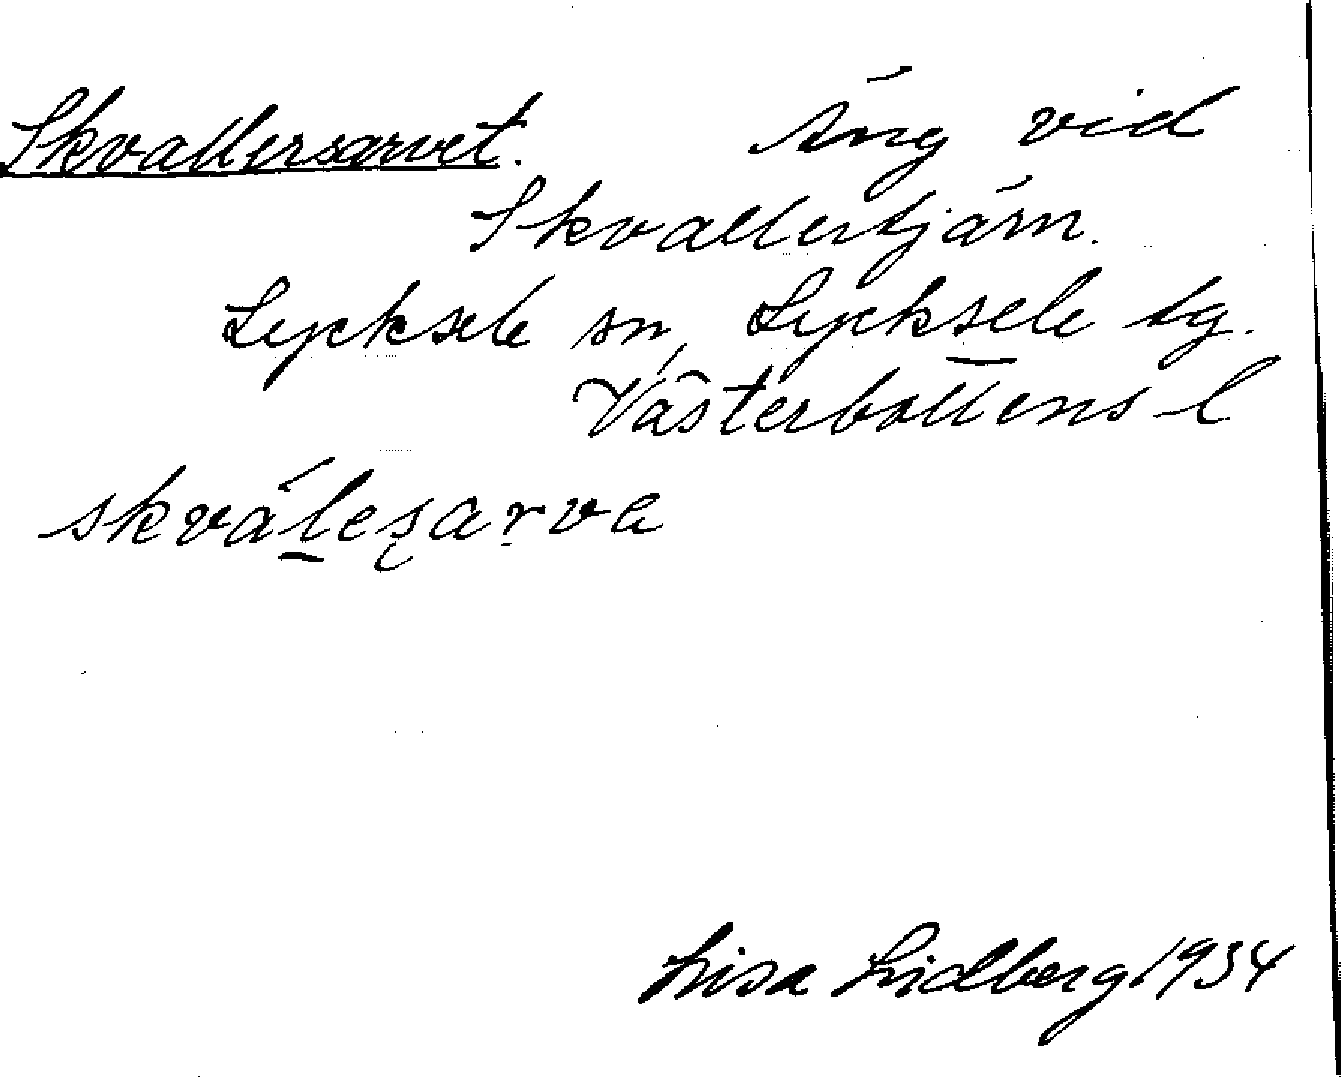 Skvallersarvet. Äng vid
Skvallertjärn.
Lycksele sn, Lycksele tg.
Västerbottens l
skválesarva
Lisa Lidberg 1934